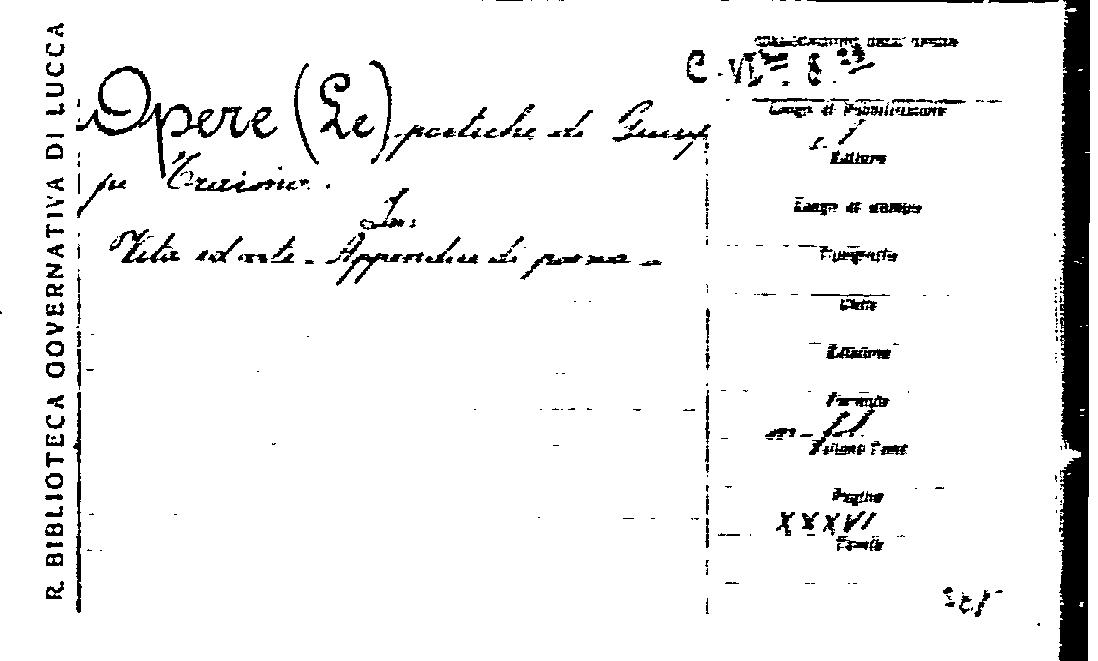 R. BIBLIOTECA GOVERNATIVA DI LUCCA
Opere (Le) poetiche di Giusep
pe
In:
Vita ed arte - Appendice di poema -
C. VI
Luogo di Pubblicazione
s. l.
Editore
Luogo di stampa
Tipografia
Data
Edizione
Formato
Volumi Tomi
Pagine
XXXVI
Tavole